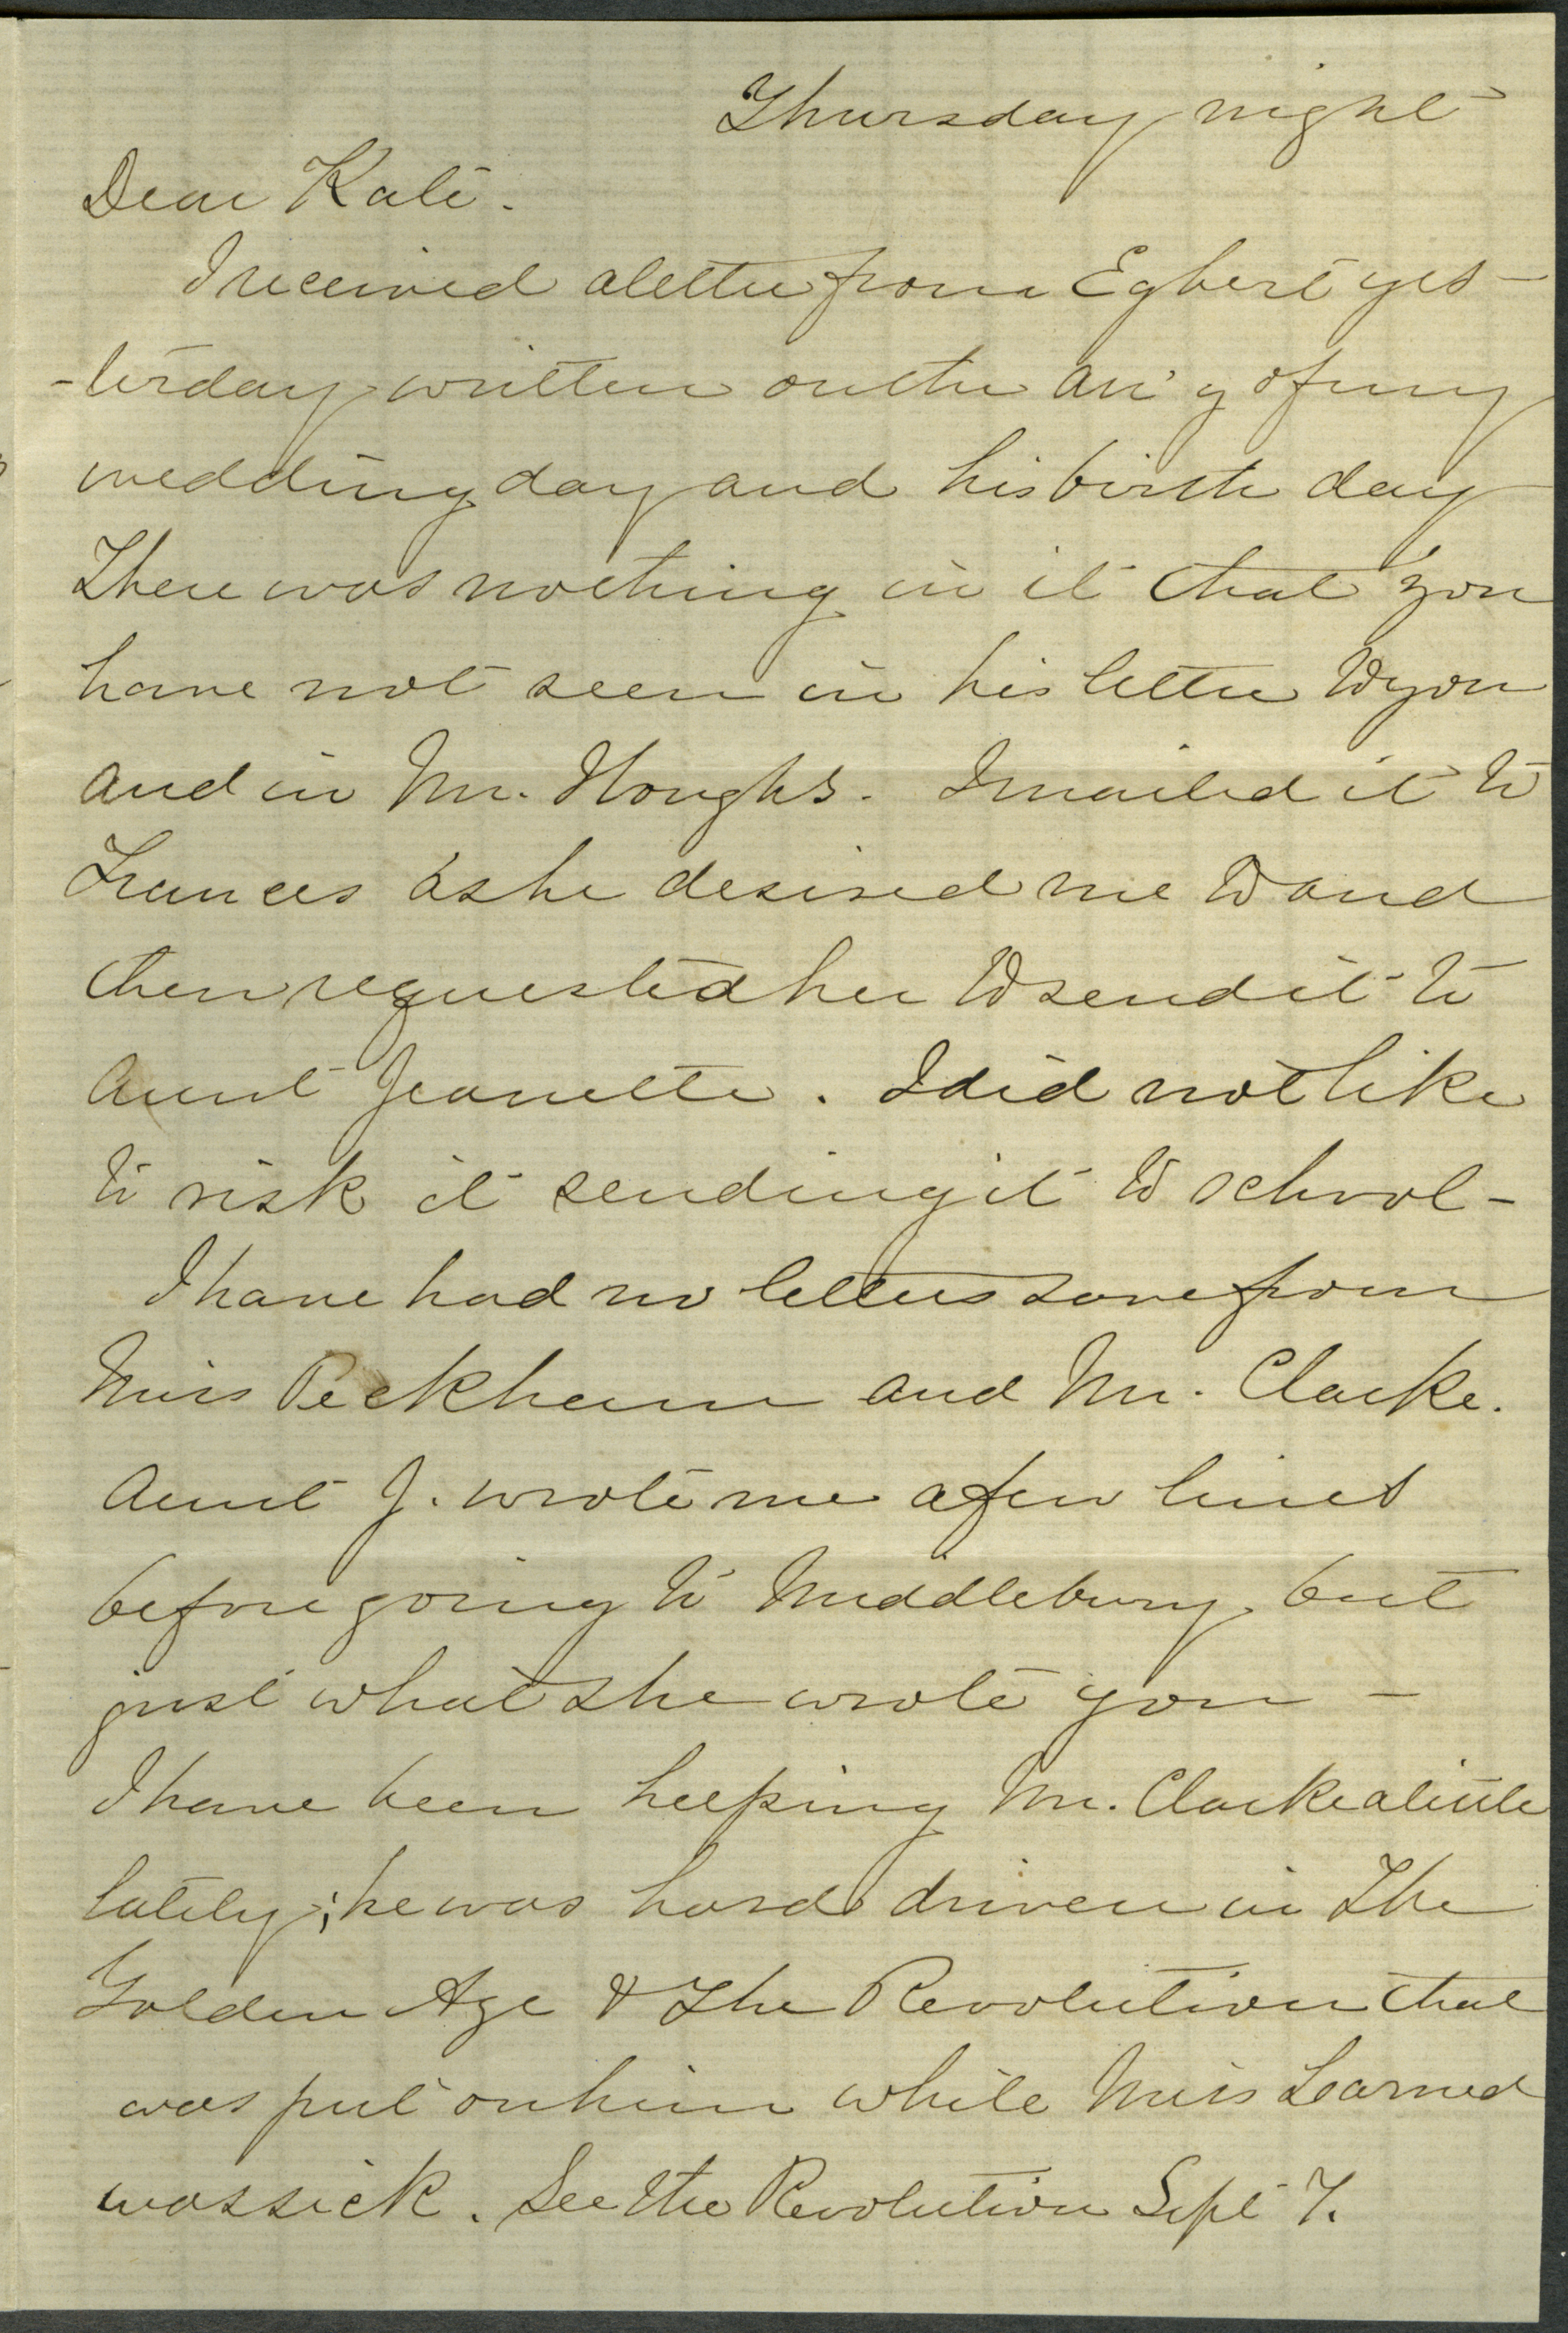 Thursday night
Dear Kate.
I received a letter from Egbert yes-
-terday written on the an'y of my
wedding day and his birth day
There was nothing in it that you
have not seen in his letter to you
and in Mr. Houghs. I mailed it to
Frances as he desired me to and
then requested her to send it to
Aunt Jeanette. I did not like
to risk it sending it to school -
I have had no letters save from
Miss Peckham and Mr. Clarke.
Aunt J. wrote me a few lines
before going to Middlebury, but
just what she wrote you -
I have been helping Mr. Clarke a little
lately; he was hard driven in The
Golden Age & The Revolution that
was put on him while Miss Learned
was sick. See the Revolution Sept 7.